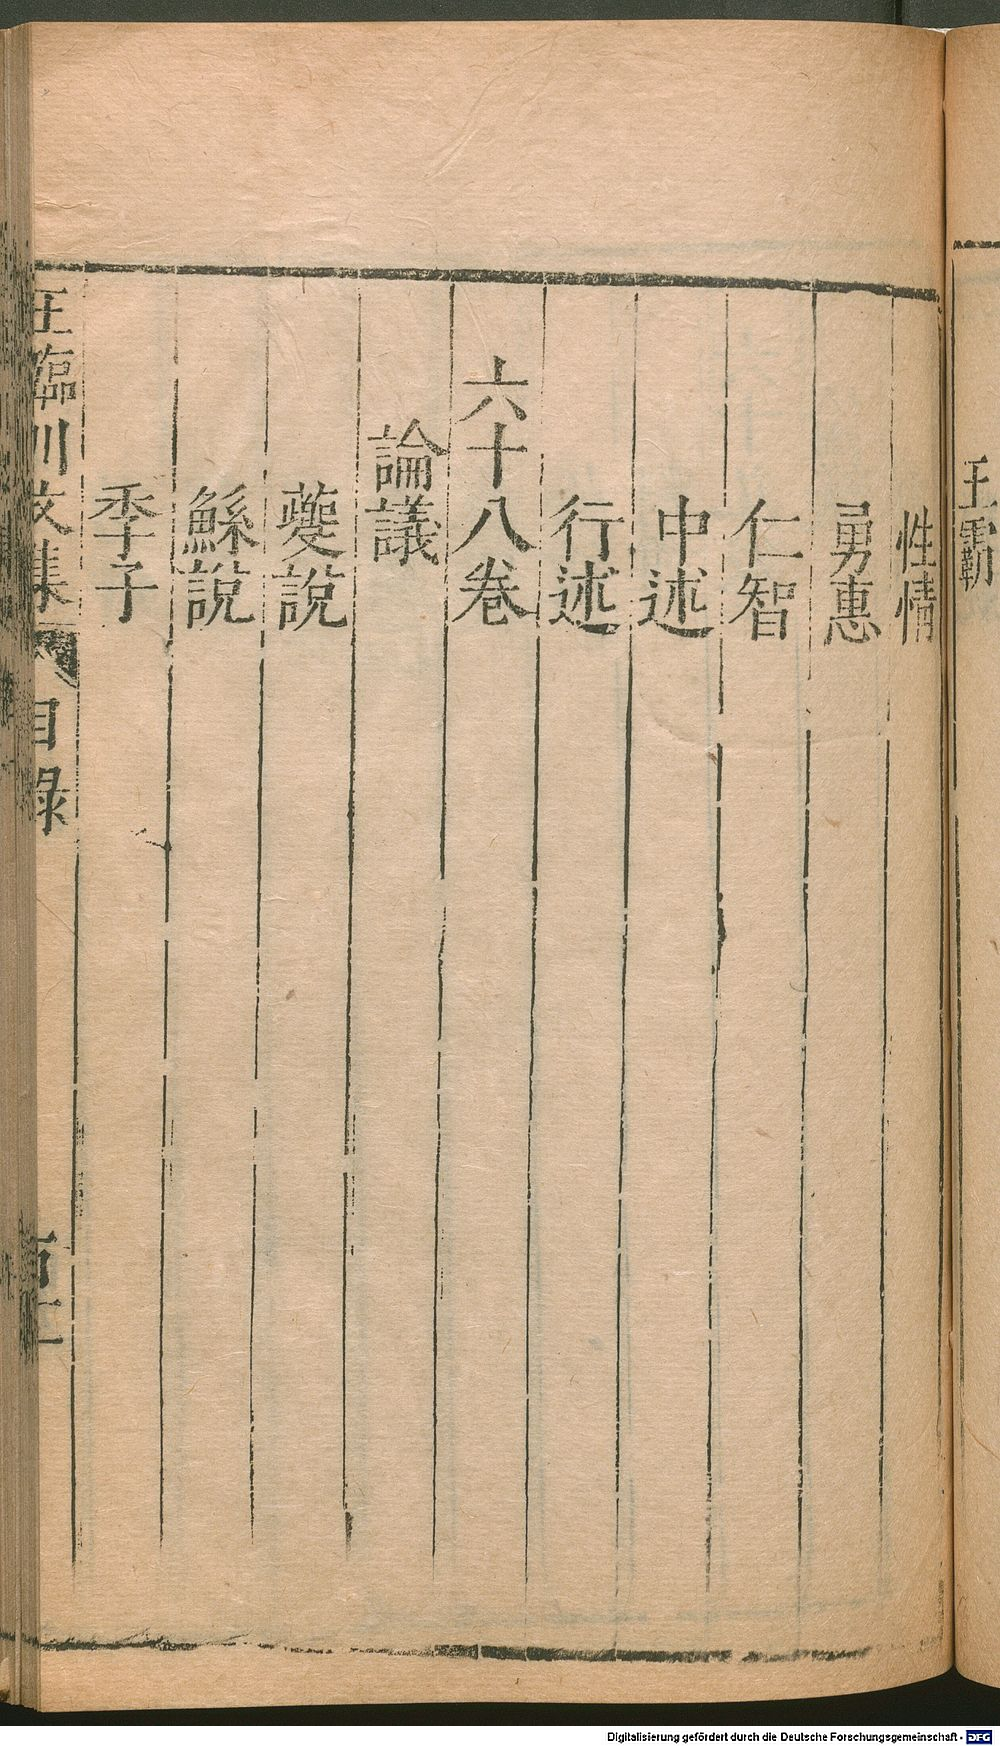 王霸
性情
勇惠
仁智
中述
行述
六十八卷
論議
夔說
鯀說
季子
王臨川文集
目錄
Digitalisierung gefördert durch die Deutsche Forschungsgemeinschaft - DFG